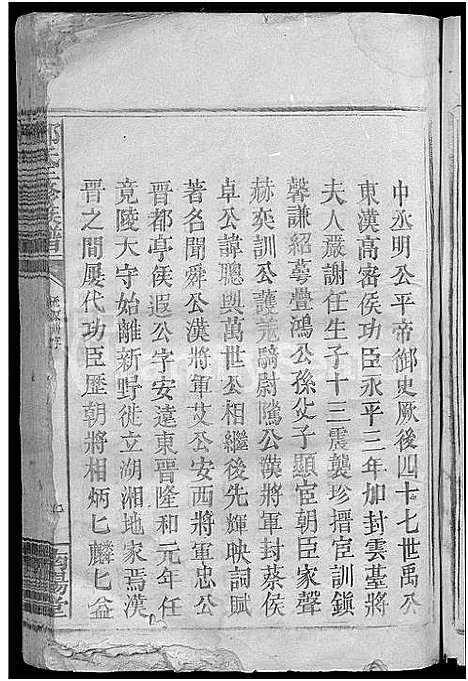 中丞明公平帝御史厥後四十七世禹公
東漢高密侯功臣永平三年加封雲臺將
夫人嚴謝任生子十三震襲珍搢宦訓鎮
馨謙紹萼疊鴻公孫父子顯宦朝臣家聲
赫奕訓公護羌騎尉隲公漢將軍封蔡侯
卓公諱聰與萬世公相繼後先輝映詞賦
著名聞舜公漢將軍艾公安西將軍忠公
晋都亭侯遐公字安遠東晋隆和元年任
竟陵大守始離新野徙立湖湘地家焉漢
晋之間屢代功臣歷朝將相炳匕麟匕益
鄧氏三修族譜
南陽堂